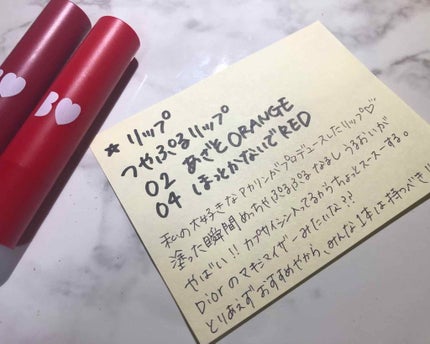 B♡
★ リップ
つやぷるリップ
02 あざとORANGE
04 ほっとかないでRED
私の大好きなアカリンがプロデュースしたリップ♡
塗った瞬間めっちゃぷるぷるなるしうるおいが
やばい!! カプサイシン入ってるからちょっとスースーする。
Diorのマキシマイザーみたいな??
とりあえずおすすめやから、みんな1本は持つべき!!